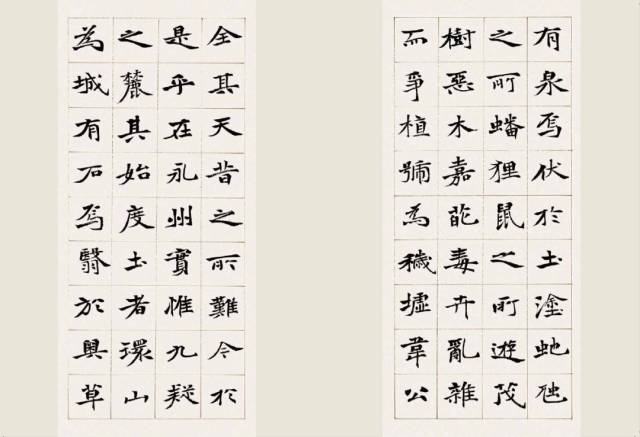 全其天昔之所難今於
是乎在永州實惟九疑
之麓其始度土者環山
為城有石焉翳於奧草
有泉焉伏於土塗虵虺
之所蟠狸鼠之所遊茂
樹惡木嘉葩毒卉亂雜
而爭植號為穢墟韋公